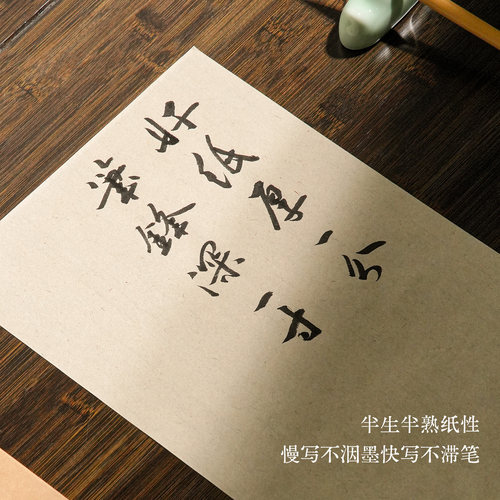 好纸厚一分
筆鋒深一寸
半生半熟纸性
慢写不洇墨快写不滞笔